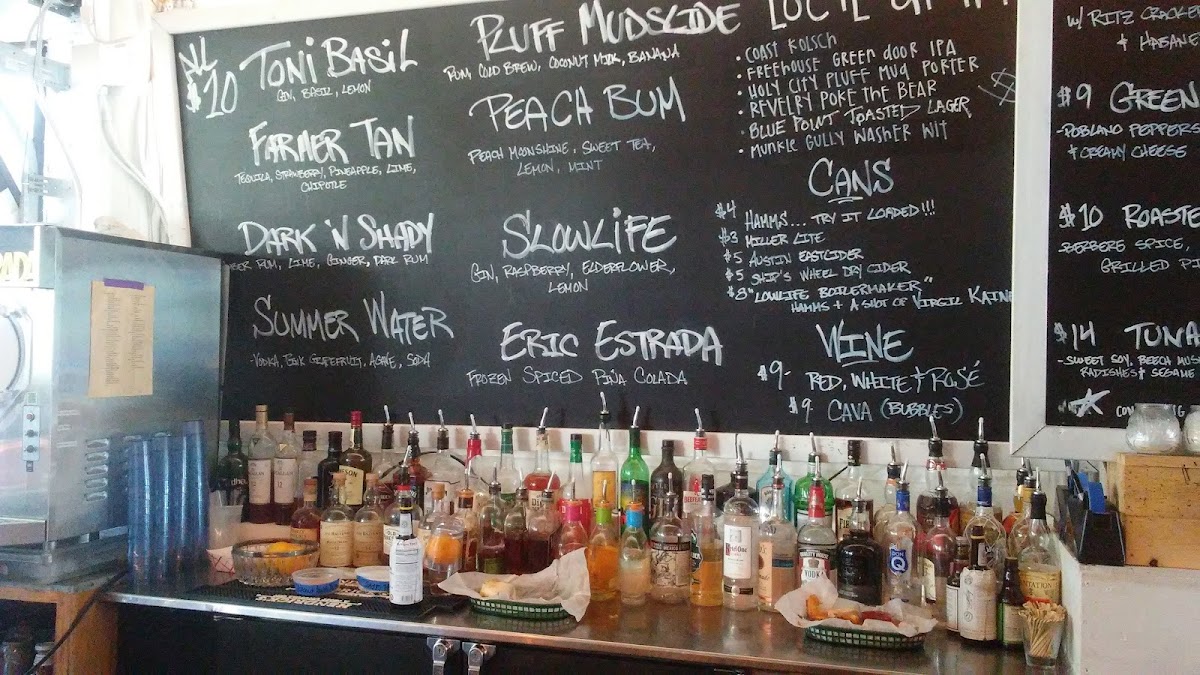 ALL $10
TONI BASIL
GIN, BASIL, LEMON
FARMER TAN
TEQUILA, STRAWBERRY, PINEAPPLE, LIME,
CHIPOTLE
DARK 'N SHADY
RUM, LIME, GINGER, DARK RUM
SUMMER WATER
-VODKA, GRAPEFRUIT, AGAVE, SODA
PLUFF MUDSLIDE
RUM, COLD BREW, COCONUT MILK, BANANA
PEACH BUM
PEACH MOONSHINE, SWEET TEA,
LEMON, MINT
SLOWLIFE
GIN, RASPBERRY, ELDERFLOWER,
LEMON
ERIC ESTRADA
FROZEN SPICED PIÑA COLADA
• COAST KOLSCH
• FREEHOUSE GREEN DOOR IPA
• HOLY CITY PLUFF MUD PORTER
• REVELRY POKE THE BEAR
• BLUE POINT TOASTED LAGER
• MUNKLE GULLY WASHER WIT
$
CANS
$4 HAMMS... TRY IT LOADED!!!
$3 MILLER LITE
$5 AUSTIN EASTCIDER
$5 SHIP'S WHEEL DRY CIDER
$8 "LOWLIFE BOILERMAKER"
HAMMS + A SHOT OF VIRGIL KAINE
WINE
$9- RED, WHITE + ROSÉ
$9- CAVA (BUBBLES)
W/ RITZ CRACKER
+ HABANE
$9 GREEN
-POBLANO PEPPERS
+ CREAMY CHEESE
$10 ROASTE
-BERBERE SPICE,
GRILLED PI
$14 TUNA
-SWEET SOY, BEECH MUS
RADISHES + SESAME
VODKA